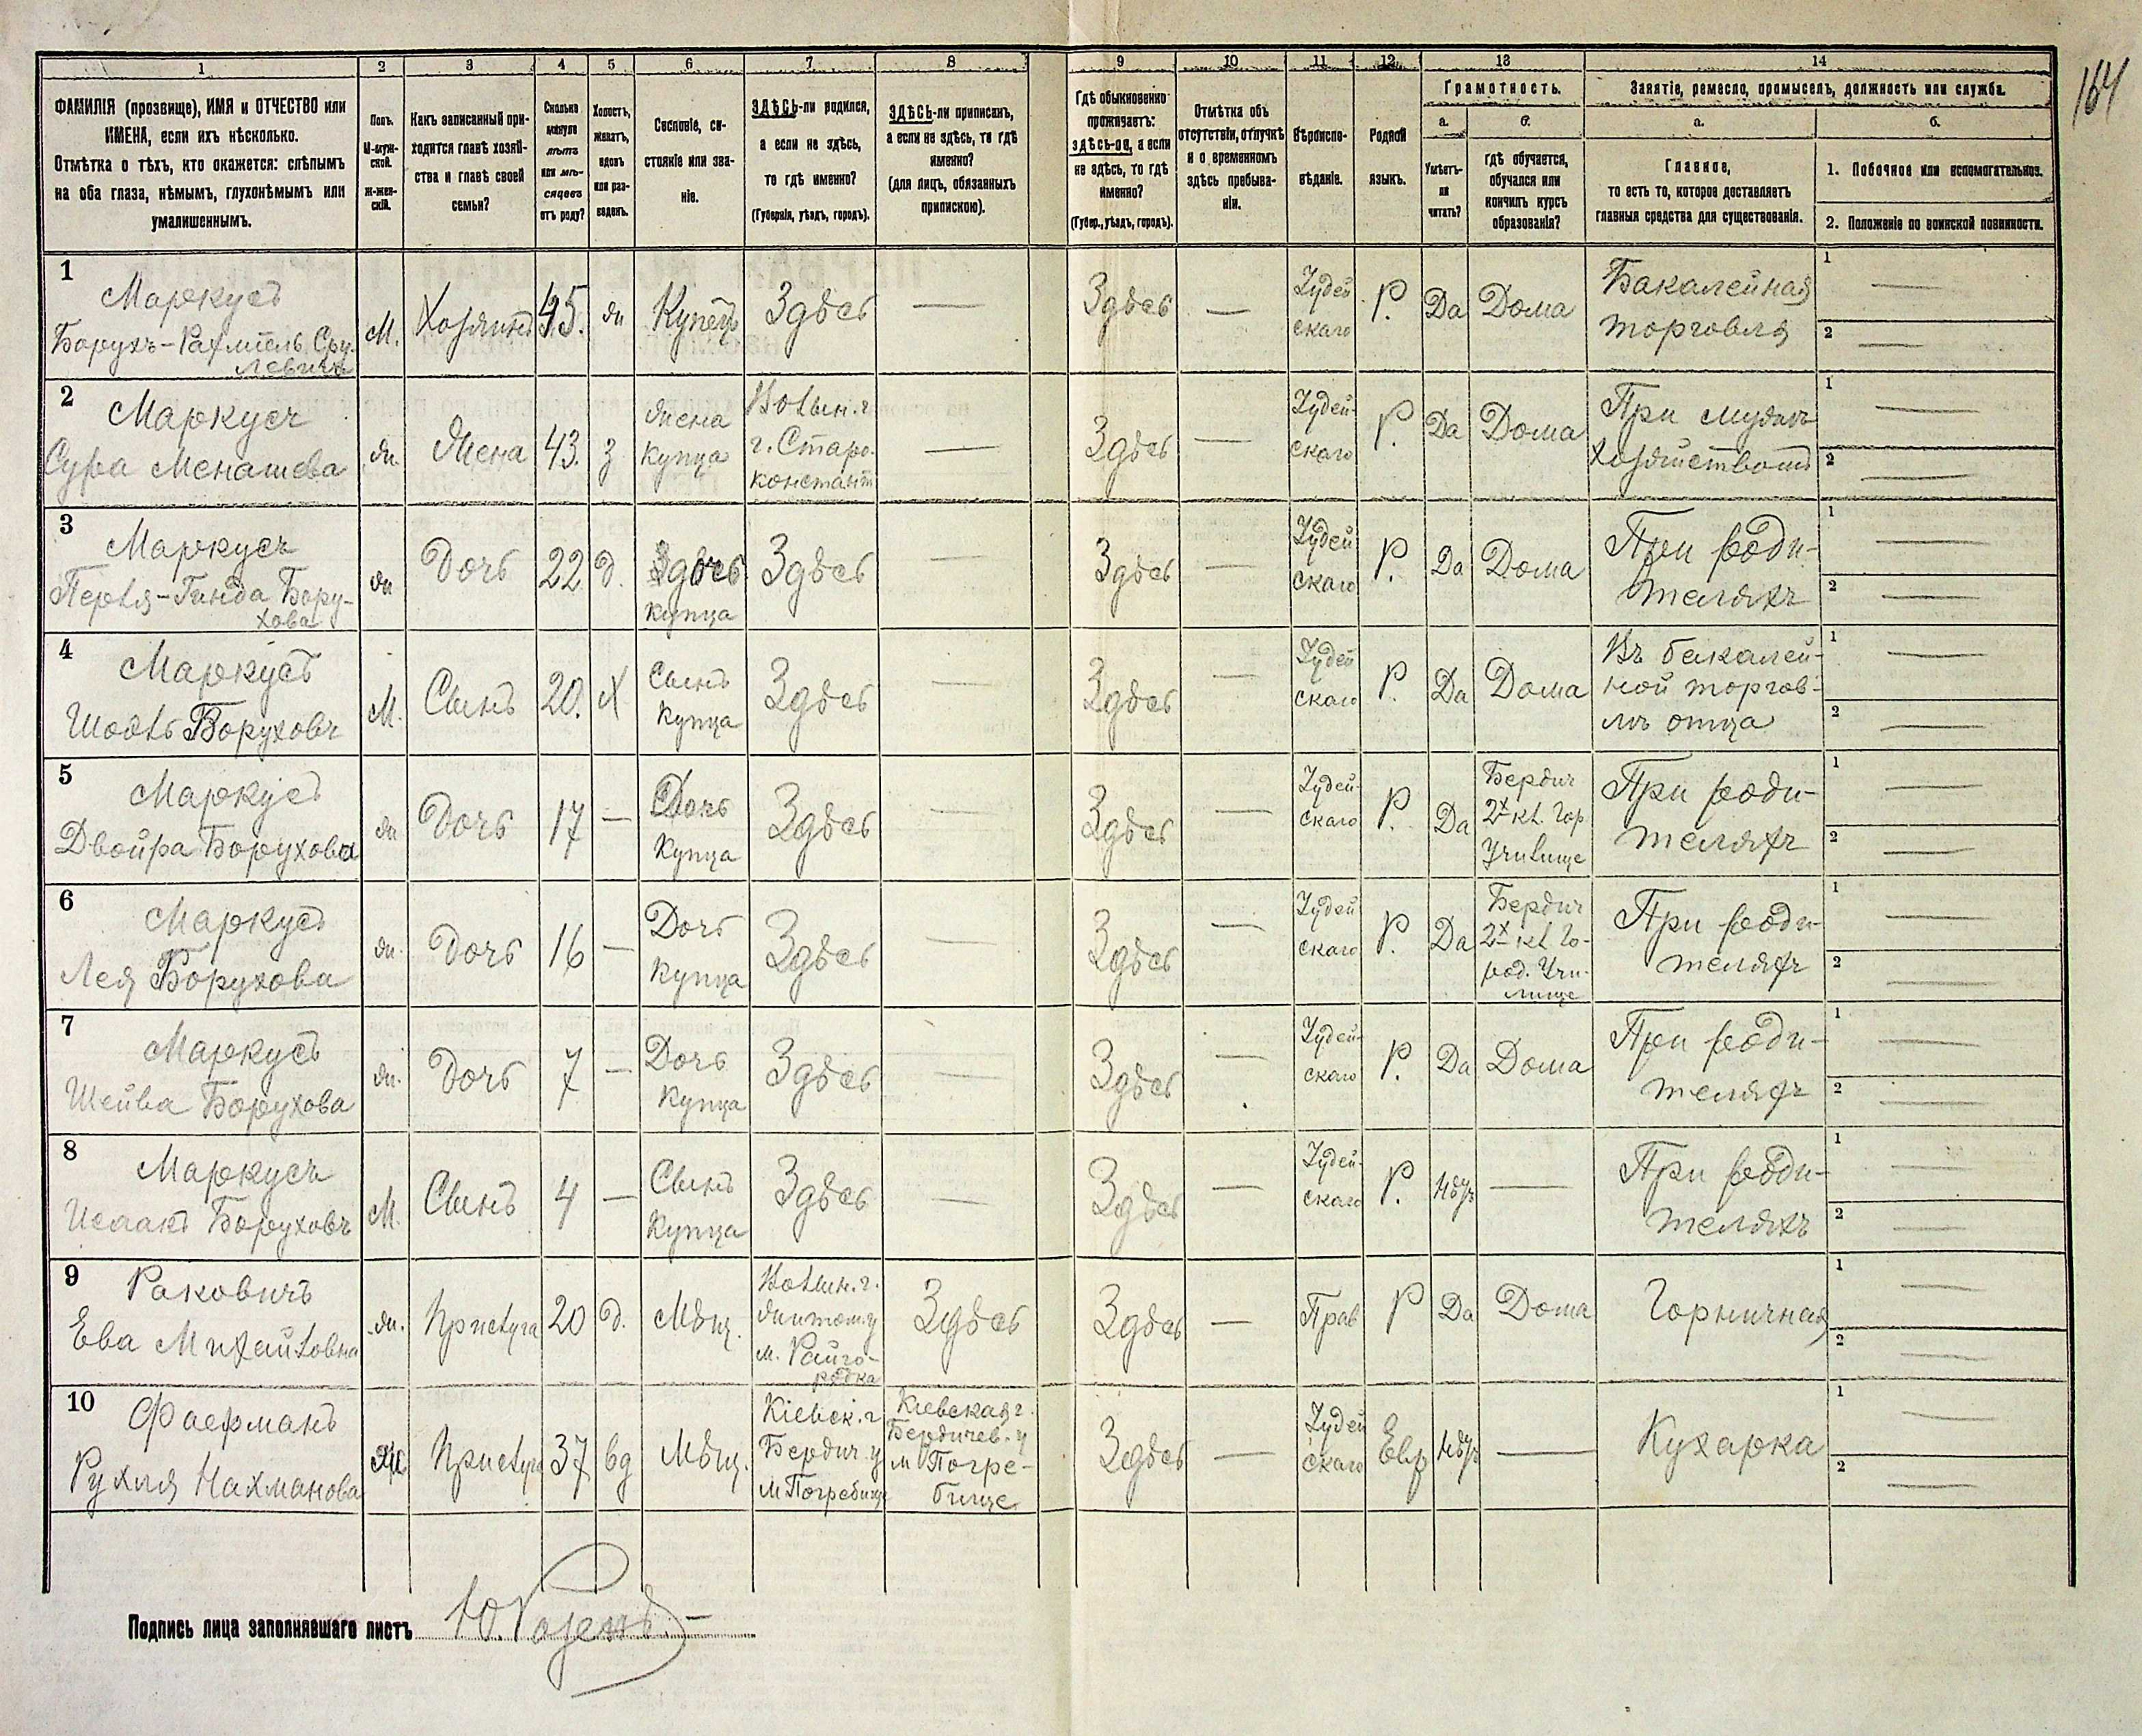 164
1 2 3 4 5 6 7 8 9 10 11 12 13 14
ФАМИЛІЯ (прозвище), ИМЯ и ОТЧЕСТВО или
ИМЕНА, если ихъ нѣсколько.
Отмѣтка о тѣхъ, кто окажется: слѣпымъ
на оба глаза, нѣмымъ, глухонѣмымъ или
умалишеннымъ.
Полъ.
М-муж-
ской.
ж-жен-
скій.
Какъ записанный при-
ходится главѣ хозяй-
ства и главѣ своей
семьи?
Сколько
минуло
лѣтъ
или мѣ-
сяцевъ
отъ роду?
Холостъ,
женатъ,
вдовъ
или раз-
веденъ.
Сословіе, со-
стояніе или зва-
ніе.
ЗДѢСЬ-ли родился,
а если не здѣсь,
то гдѣ именно?
(Губернія, уѣздъ, городъ).
ЗДѢСЬ-ли приписанъ,
а если не здѣсь, то гдѣ
именно?
(для лицъ, обязанныхъ
припискою).
Гдѣ обыкновенно
проживаетъ:
здѣсь-ли, а если
не здѣсь, то гдѣ
именно?
(Губер., уѣздъ, городъ).
Отмѣтка объ
отсутствіи, отлучкѣ
и о временномъ
здѣсь пребыва-
ніи.
Вѣроиспо-
вѣданіе.
Родной
языкъ.
Грамотность.
а.
Умѣетъ-
ли
читать?
б.
гдѣ обучается,
обучался или
кончилъ курсъ
образованія?
Занятіе, ремесло, промыселъ, должность или служба.
а.
Главное,
то есть то, которое доставляетъ
главныя средства для существованія.
б.
1. Побочное или вспомогательное.
2. Положеніе по воинской повинности.
1
Маркусъ
Борухъ-Рахмиель Сру-
левичъ
М. Хозяинъ 45. Ж Купецъ Здѣсь — Здѣсь —
Іудей
скаго
Р. Да Дома
Бакалейная
торговля
1 —
2 —
2
Маркусъ
Сура Менашева
Ж. Жена 43. З
Жена
Купца
Волын. г.
г. Старо-
констант
— Здѣсь —
Іудей-
скаго
Р. Да Дома
При мужѣ
хозяйствомъ
1 —
2 —
3
Маркусъ
Перля-Гинда Бору-
хова
Ж Дочь 22 Д.
Дочь
купца
Здѣсь — Здѣсь —
Іудей
скаго
Р. Да Дома
При роди-
теляхъ
1 —
2 —
4
Маркусъ
Шоэль Боруховъ
М. Сынъ 20. Х
Сынъ
Купца
Здѣсь — Здѣсь —
Іудей
скаго
Р. Да Дома
Въ бакалей-
ной торгов-
лѣ отца
1 —
2 —
5
Маркусъ
Двойра Борухова
Ж Дочь 17 —
Дочь
Купца
Здѣсь — Здѣсь —
Іудей-
скаго
Р. Да
Бердич
2х кл. Гор
Училище
При роди-
теляхъ
1 —
2 —
6
Маркусъ
Лея Борухова
Ж. Дочь 16 —
Дочь
Купца
Здѣсь — Здѣсь —
Іудей
скаго
Р. Да
Бердич
2х кл Го-
род. Учи-
лище
При роди-
теляхъ
1 —
2 —
7
Маркусъ
Шейва Борухова
Ж. Дочь 7 —
Дочь
Купца
Здѣсь — Здѣсь —
Іудей-
скаго
Р. Да Дома
При роди-
теляхъ
1 —
2 —
8
Маркусъ
Исаакъ Боруховъ
М. Сынъ 4 —
Сынъ
Купца
Здѣсь — Здѣсь —
Іудей-
скаго
Р. Нѣтъ —
При роди-
теляхъ
1 —
2 —
9
Раковичъ
Ева Михайловна
Ж. Прислуга 20 Д. Мѣщ.
Волын. г.
Житом. у
м. Райго-
родка
Здѣсь Здѣсь — Прав Р Да Дома Горничная
1 —
2 —
10
Фаерманъ
Рухля Нахманова
Ж Прислуга 37 вд Мѣщ.
Кіевск. г
Бердич. у
м Погребище
Кіевская г.
Бердичев. у
м Погре-
бище
Здѣсь —
Іудей
скаго
Евр Нѣтъ — Кухарка
1 —
2 —
Подпись лица заполнявшаго листъ